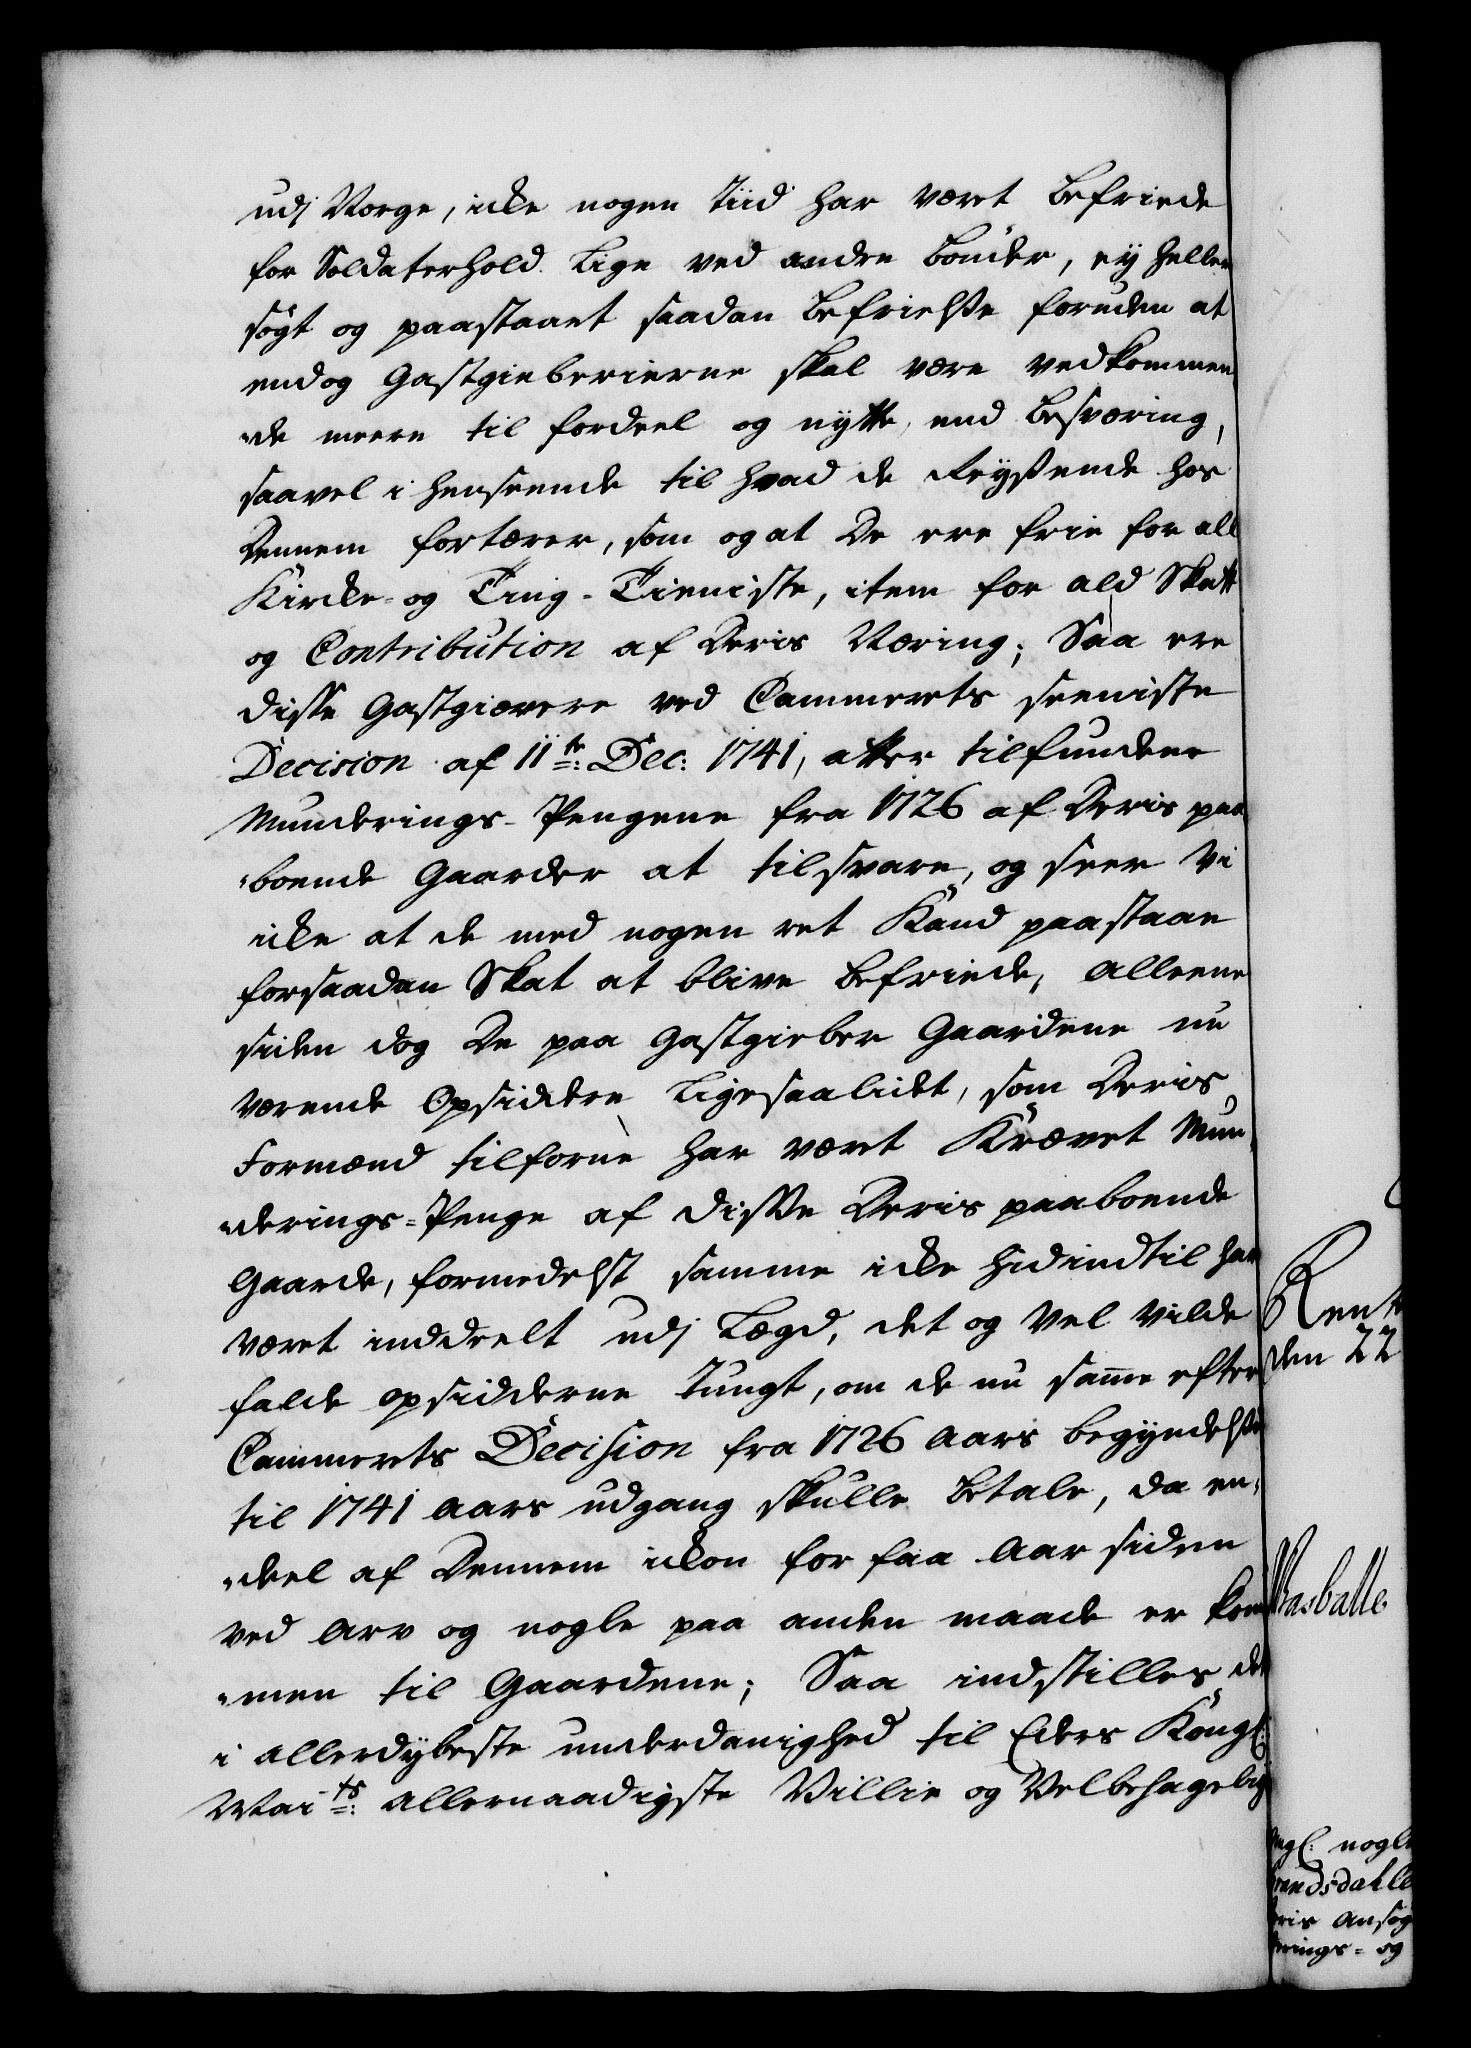 udj Norge, icke nogen Tiid har været Befriede
for Soldaterhold Lige ved andre Bønder, ey heller
søgt og paastaaet saadan Befrielsse foruden at
endog Gastgieberierne skal være vedkommen
de meere til fordeel og nytte, end Besværing,
saavel i henseende til hvad de Reyssende hos
Dennem fortærer, som og at De ere frie for all
Kircke- og Ting-Tieniste, item for ald Skatt
og Contribution af Deris Næring; Saa ere
disse Gastgiævere ved Cammerets seeniste
Decision af 11te: Dec: 1741, atter tilfundene
Munderings-Pengene fra 1726 af Deris paa
boende Gaarder at tilsvare, og seer Vi
icke at de med nogen ret Kand paastaae
forsaadan Skat at blive Befriede, Alleene
siden dog De paa Gastgieber Gaardene nu
værende Opsiddere Ligesaalidet, som Deris
Formænd tilforne har været Krævet Mun
derings-Penge af disse Deris paaboende
Gaarde, formedelst samme icke hidindtil har
været inddeelt udj Lægd, det og vel vilde
falde opsidderne Tungt, om de nu samme efter
Cammerets Decision fra 1726 Aars begyndelsse
til 1741 Aars udgang skulle Betale, da en
deel af Dennem ickon for faa Aar siden
ved Arv og nogle paa anden maade er kom
men til Gaardene; Saa indstilles det
i allerdybeste underdanighed til Eders Kongl:
Maits: allernaadigste Villie og Velbehagelig
Rente
den 22
ngl: nogle
brandsdahle
Deris Ansøg
derings- og